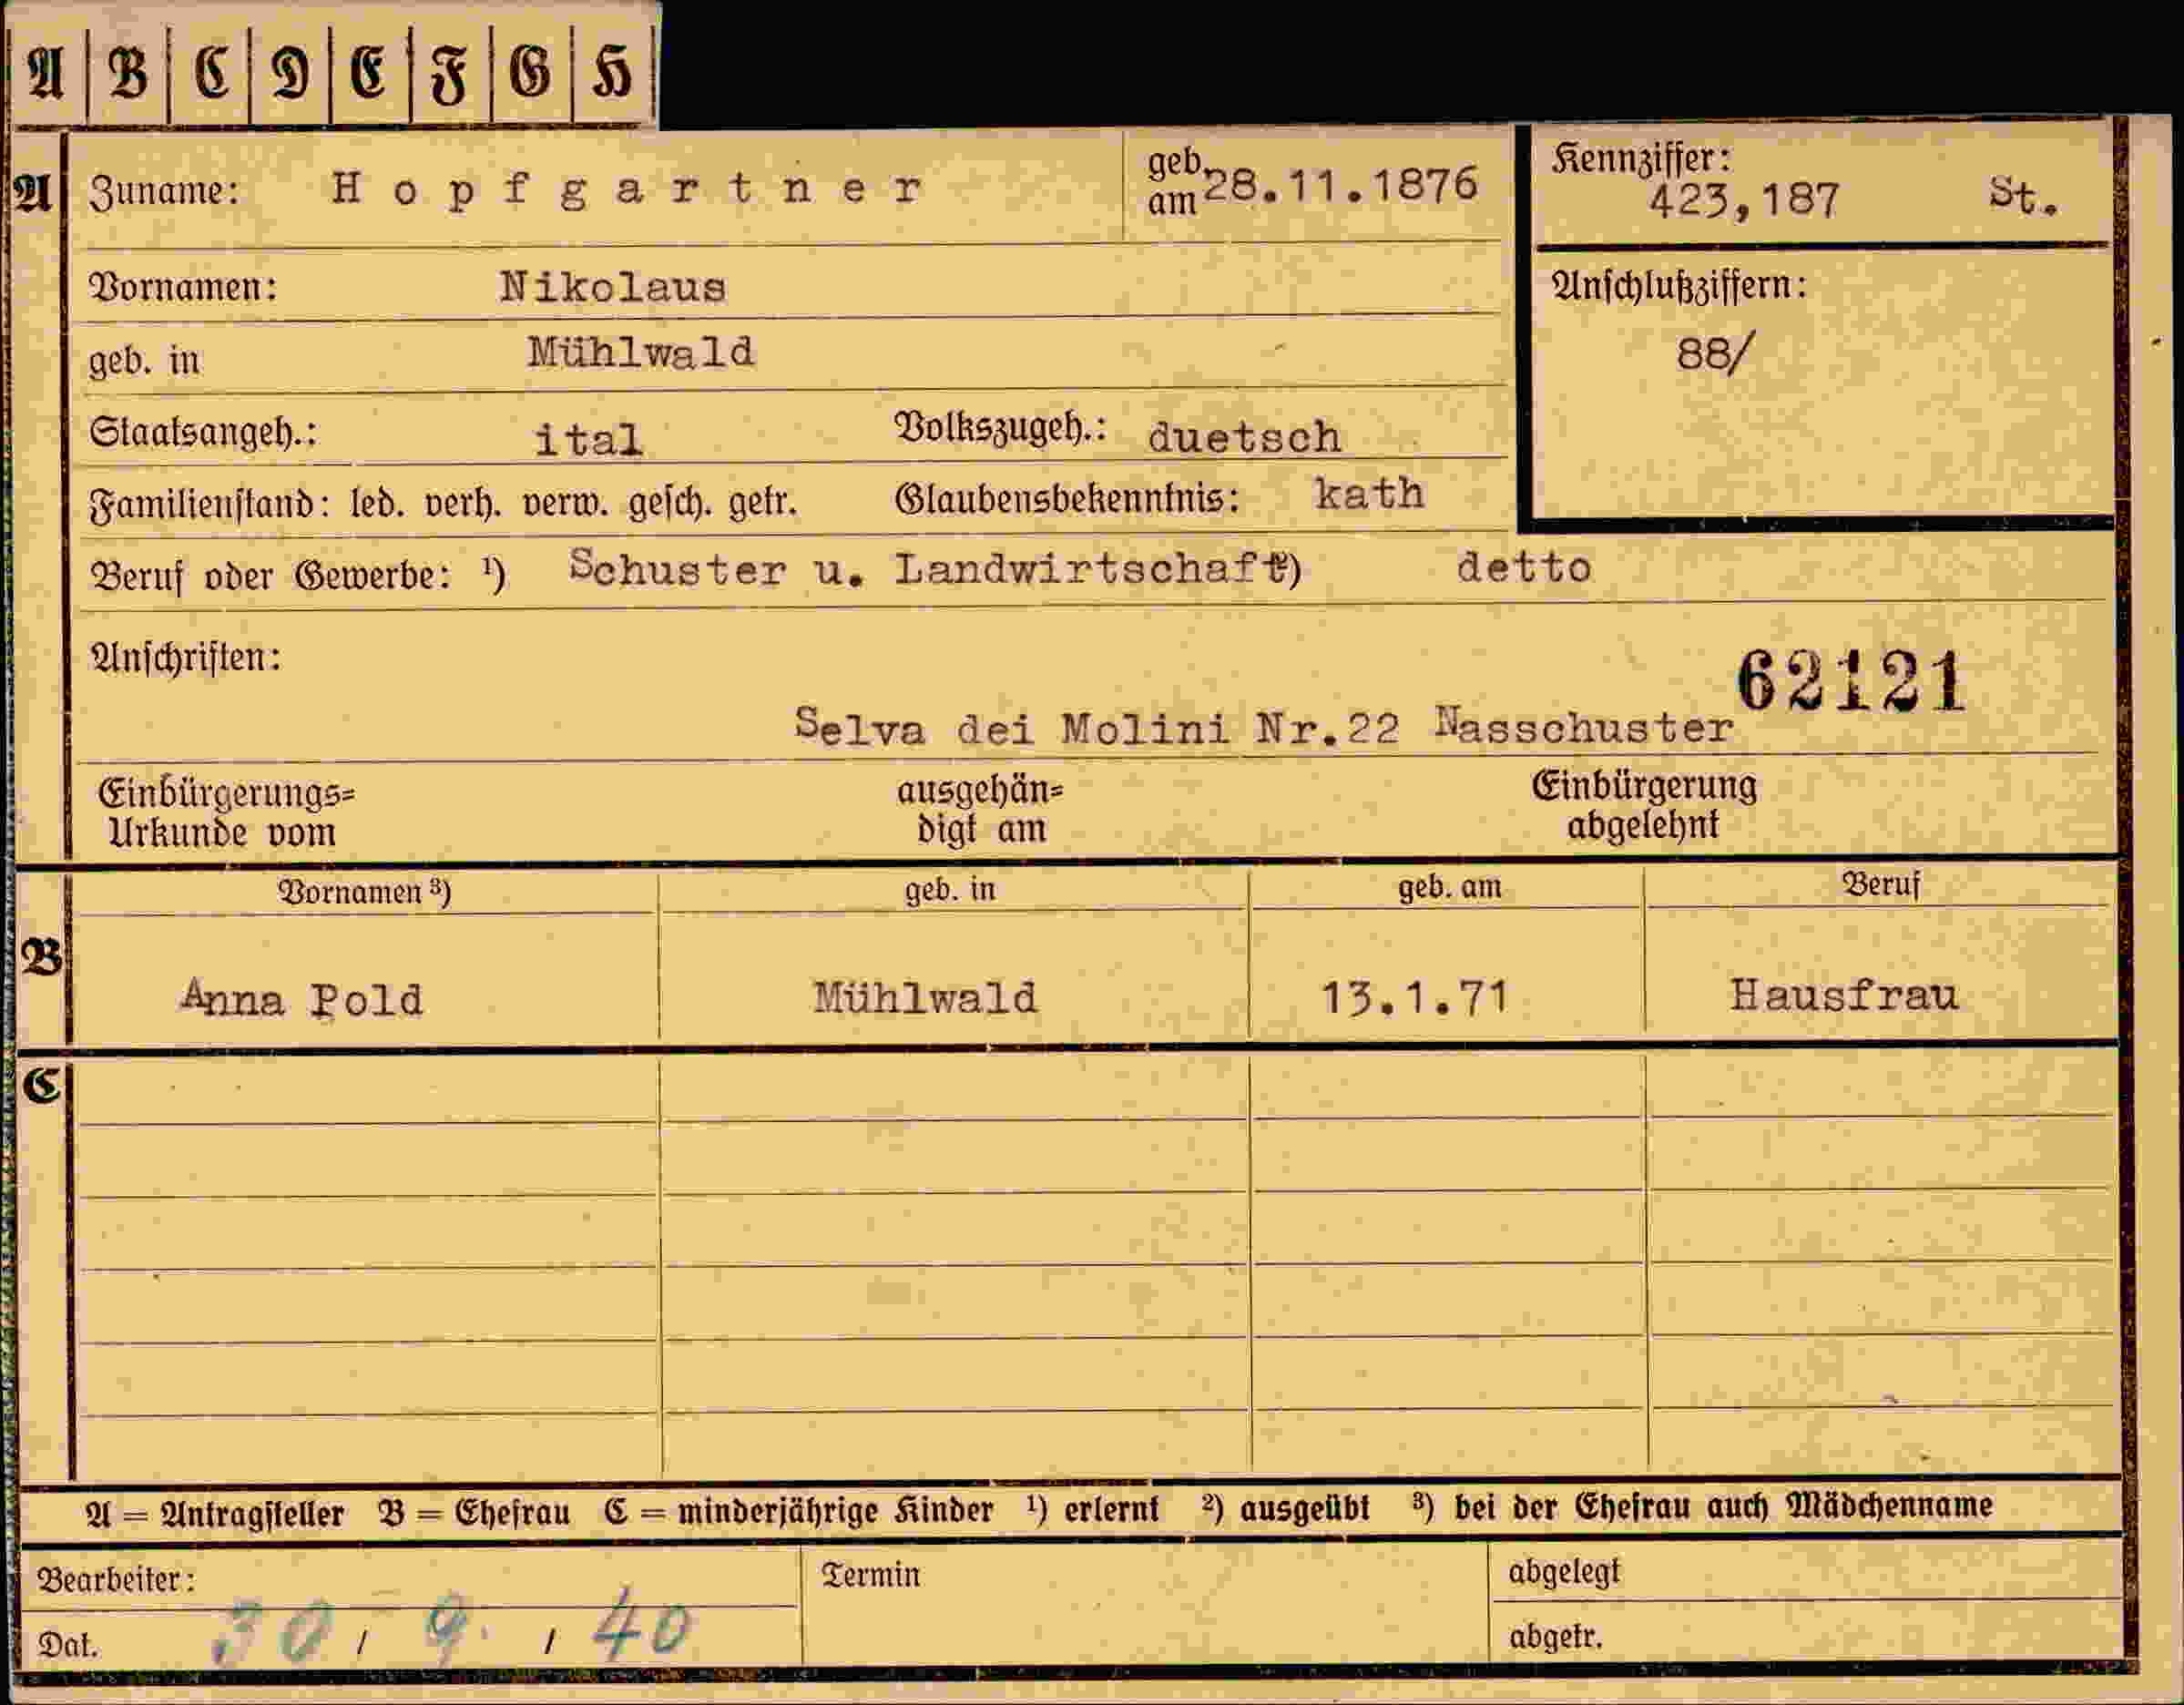 A B C D E F G H
A Zuname: Hopfgartner geb. am 28.11.1876 Kennziffer: 423,187 St.
Vornamen: Nikolaus Anschlußziffern:
geb. in Mühlwald 88/
Staatsangeh.: ital Volkszugeh.: duetsch
Familienstand: led. verh. verw. gesch. getr. Glaubensbekenntnis: kath
Beruf oder Gewerbe: ¹) Schuster u. Landwirtschaft ²) detto
Anschriften: 62121
Selva dei Molini Nr.22 Nasschuster
Einbürgerungs= ausgehän= Einbürgerung
Urkunde vom digt am abgelehnt
Vornamen ³) geb. in geb. am Beruf
B Anna Pold Mühlwald 13.1.71 Hausfrau
C
A = Antragsteller B = Ehefrau C = minderjährige Kinder ¹) erlernt ²) ausgeübt ³) bei der Ehefrau auch Mädchenname
Bearbeiter: Termin abgelegt
Dat. 30 / 9. / 40 abgetr.